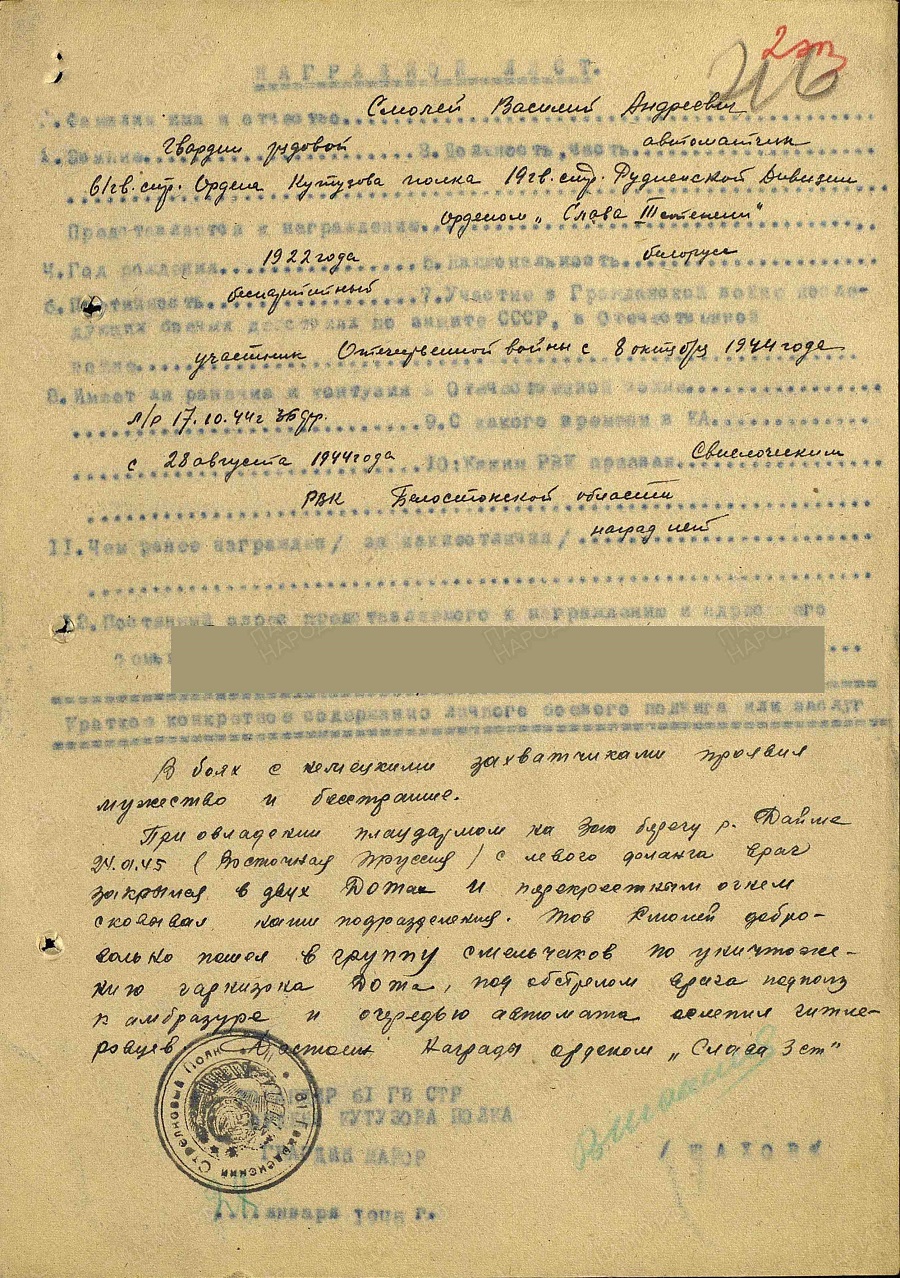 2 эп
НАГРАДНОЙ ЛИСТ.
Смолей Василий Андреевич
1. Фамилия имя и отчество
2. Звание гвардии рядовой 3. Должность, часть автоматчик
61 гв. стр. Ордена Кутузова полка 19 гв. стр. Рудненской Дивизии
Представляется к награждению орденом „Слава III степени"
4. Год рождения 1922 года 5. Национальность белорус
6. Партийность беспартийный 7. Участие в Гражданской войне после-
дующих боевых действиях по защите СССР, в Отечественной
войне участник Отечественной войны с 8 октября 1944 года
8. Имеет ли ранения и контузии в Отечественной войне
л/р 17.10.44г 9. С какого времени в КА
с 28 августа 1944 года 10. Каким РВК призван Свислочским
РВК Белостокской области
11. Чем ранее награжден/ за какие отличия/ наград нет
12. Постоянный адрес представляемого к награждению и адрес его
семьи
Краткое конкретное содержание личного боевого подвига или заслуг
В боях с немецкими захватчиками проявил
мужество и бесстрашие.
При овладении плацдармом на Зап берегу р. Дайме
24.01.45 (Восточная Пруссия) с левого фланга враг
закрылся в двух Дотах и перекрестным огнем
сковывал наши подразделения. Тов Смолей добро-
вольно пошел в группу смельчаков по уничтоже-
нию гарнизона Дота, под обстрелом врага подполз
к амбразуре и очередью автомата ослепил гитле-
ровцев. Достоин Награды орденом „Слава 3 ст"
КОМАНДИР 61 ГВ СТР
ОРДЕНА КУТУЗОВА ПОЛКА
ГВАРДИИ МАЙОР /ШАХОВ/
января 1945 г.
61 Гвардейский Стрелковый Полк